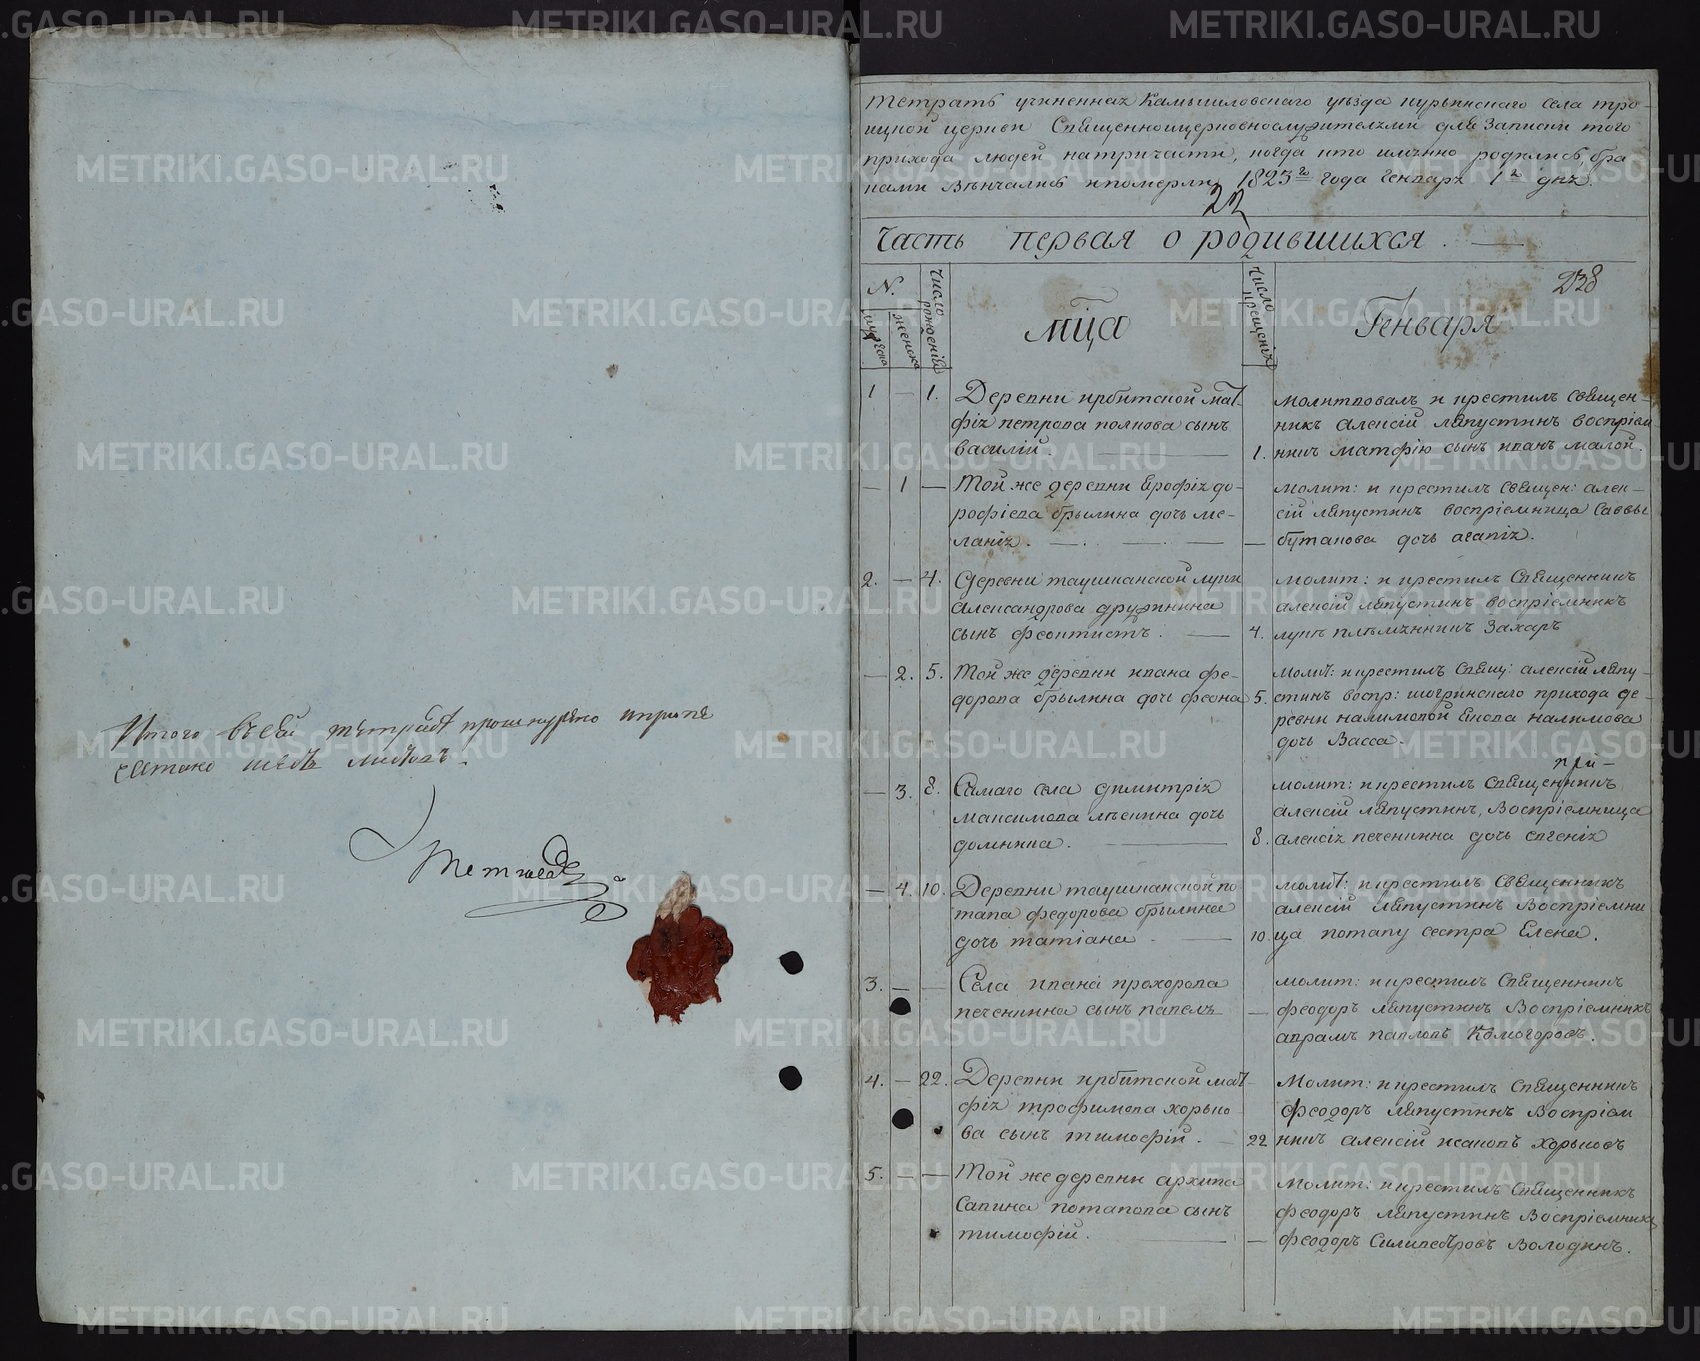 Итого въ сей тѣтраде прошнурено и припе
чатано шесть листовъ.
Тетрать учиненная Камышловскаго уѣзда курьинскаго села тро-
ицкой церкви Священноицерковнослужителями для Записки того
прихода людей натричасти, когда кто имянно родились, бра
ками Вѣнчались и померли, 1823го года Генваря 1го дня.
22
Часть первая о родившихся.
238
N.
мужеска
женска
Число рожденія
мца
Число крещенія
Генваря
1 — 1. Деревни ирбитской мат-
фія петрова попкова сынъ
василій.
1.
молитвовалъ и крестилъ Священ-
никъ алексій ляпустинъ воспріем
никъ матфію сынъ иванъ малой.
— 1 — Той же деревни Ерофія до-
рофіева брылина дочь ме-
ланія.
—
молит: и крестилъ Священ: алек-
сій ляпустинъ воспріемница Саввы
бутакова дочь агапія.
2. — 4. деревни таушканской лупи
александрова дружинина
сынъ феоктистъ.
4.
молит: и крестилъ Священникъ
алексій ляпустинъ воспріемникъ
лупи плѣмянникъ Захаръ
— 2. 5. Той же деревни ивана фе-
дорова брылина дочь феона
5.
Молит: и крестилъ Свящ: алексій ляпу-
стинъ воспр: шогринскаго прихода де-
ревни налимовой Екова налимова
дочь Васса.
— 3. 8. Самаго села димитрія
максимова лѣскина дочь
домника.
8.
молит: и крестилъ Священникъ
алексій ляпустинъ, Воспріемница
алексія печенкина дочь евгенія
— 4. 10. Деревни таушканской по
тапа федорова брылина
дочь татіана
10.
молит: и крестилъ Священникъ
алексій ляпустинъ Воспріемни
ца потапу сестра Елена.
3. — — Села ивана прохорова
печенкина сынъ павелъ
—
молит: и крестилъ Священникъ
феодоръ ляпустинъ Воспріемникъ
аврамъ павловъ Комогоровъ.
4. — 22. Деревни ирбитской мат-
фія трофимова хорько
ва сынъ тимофій.
22
Молит: и крестилъ Священникъ
феодоръ ляпустинъ Воспріем
никъ алексій исаковъ хорьковъ
5. — — Той же деревни архипа
Сапина потапова сынъ
тимофій.
—
Молит: и крестилъ Священникъ
феодоръ ляпустинъ Воспріемникъ
феодоръ Володинъ.
METRIKI.GASO-URAL.RU